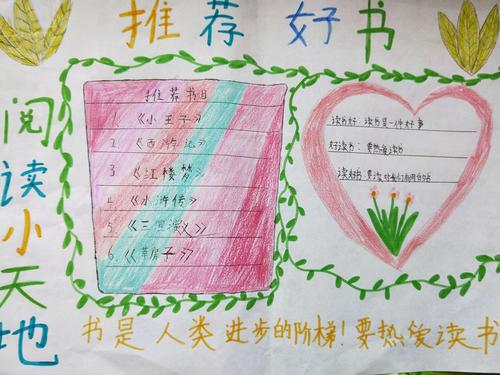 推荐好书
阅读小天地
推荐书目
1 《小王子》
2 《西游记》
3 《红楼梦》
4 《水浒传》
5 《三国演义》
6 《草房子》
读书好：读书是一件好事
好读书：要热爱读书
读好书：要读对我们有用的书
书是人类进步的阶梯！要热爱读书